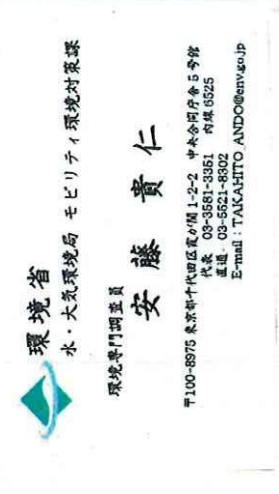 環境省
水・大気環境局 モビリティ環境対策課
環境専門調査員
安藤 貴仁
〒100-8975 東京都千代田区霞が関1-2-2 中央合同庁舎5号館
代表 03-3581-3351 内線 6525
直通 03-5521-8302
E-mail : TAKAHITO_ANDO@env.go.jp